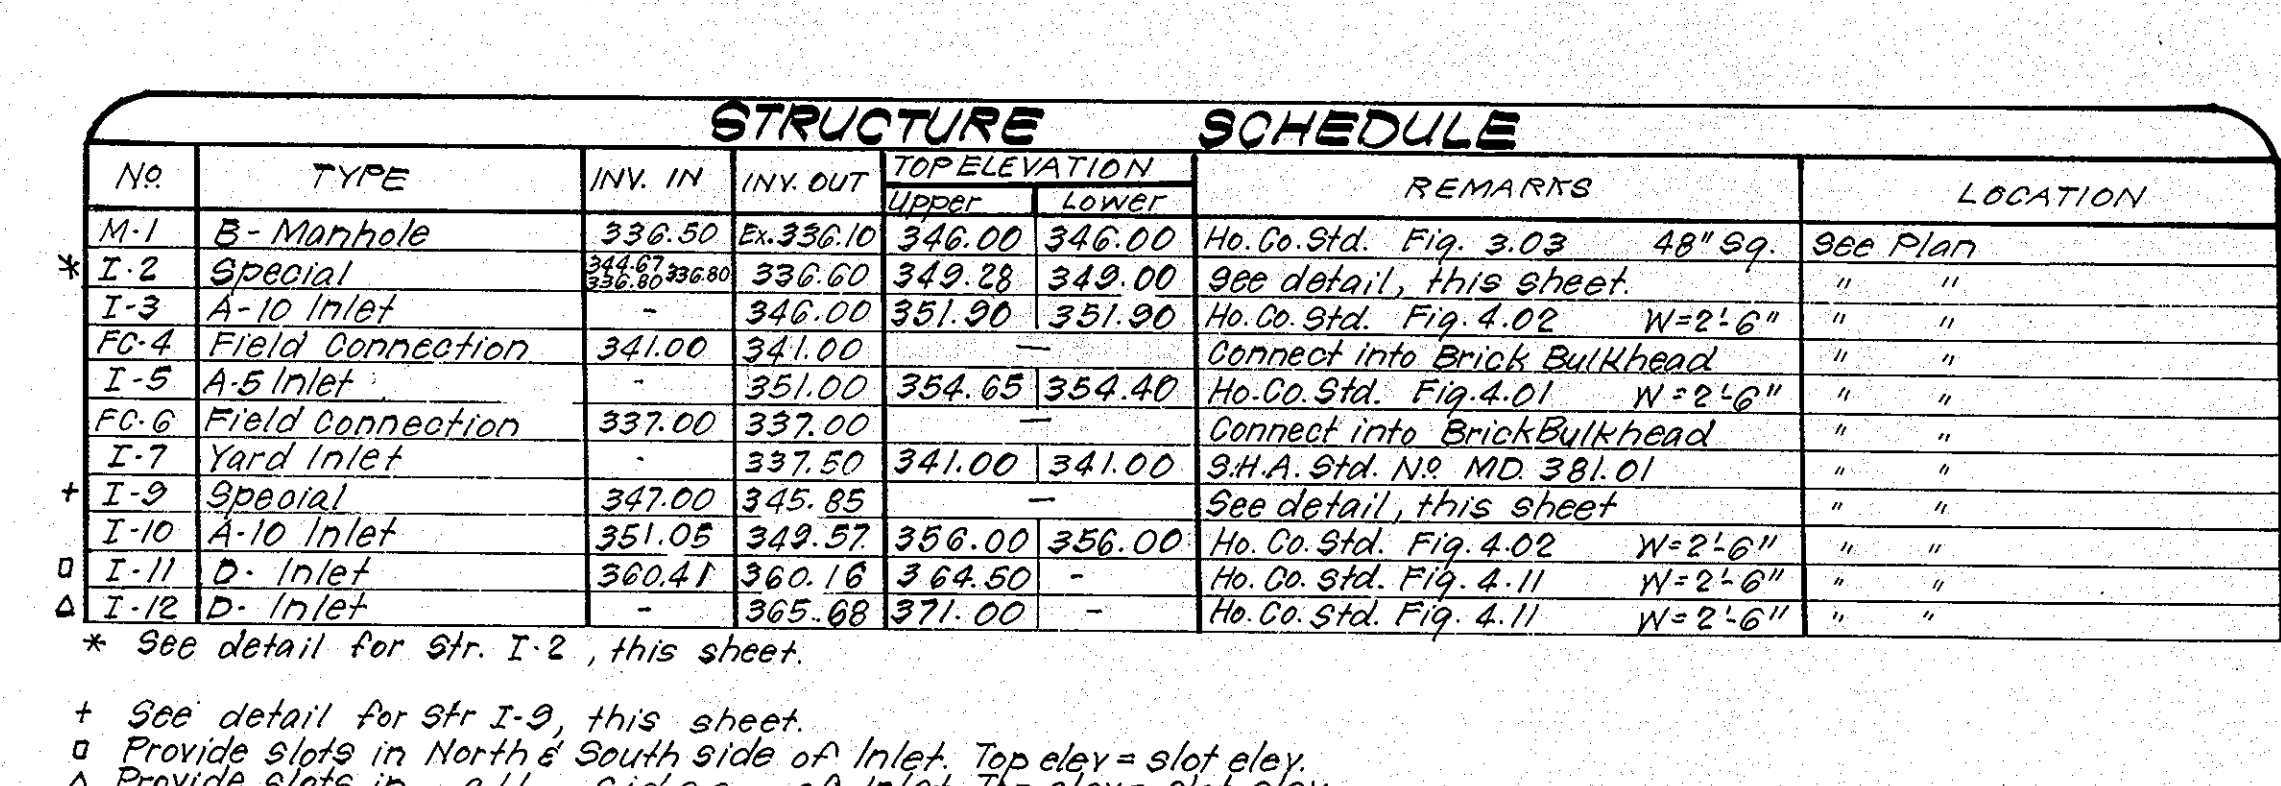 STRUCTURE SCHEDULE
No. TYPE INV. IN INV. OUT TOP ELEVATION REMARKS LOCATION
Upper Lower
M-1 B-Manhole 336.50 Ex.336.10 346.00 346.00 Ho.Co.Std. Fig. 3.03 48" Sq. See Plan
* I-2 Special 344.67 336.80 336.80 336.60 349.28 349.00 See detail, this sheet. " "
I-3 A-10 Inlet - 346.00 351.90 351.90 Ho.Co.Std. Fig. 4.02 W=2'-6" " "
FC-4 Field Connection 341.00 341.00 — Connect into Brick Bulkhead " "
I-5 A-5 Inlet - 351.00 354.65 354.40 Ho.Co.Std. Fig. 4.01 W=2'-6" " "
FC-6 Field Connection 337.00 337.00 — Connect into Brick Bulkhead " "
I-7 Yard Inlet - 337.50 341.00 341.00 S.H.A. Std. No. MD. 381.01 " "
+ I-9 Special 347.00 345.85 — See detail, this sheet " "
I-10 A-10 Inlet 351.05 349.57 356.00 356.00 Ho. Co. Std. Fig. 4.02 W=2'-6" " "
□ I-11 D- Inlet 360.41 360.16 364.50 - Ho. Co. Std. Fig. 4.11 W=2'-6" " "
△ I-12 D- Inlet - 365.68 371.00 - Ho. Co. Std. Fig. 4.11 W=2'-6" " "
* See detail for Str. I-2, this sheet.
+ See detail for Str I-9, this sheet.
□ Provide slots in North & South side of Inlet. Top elev = slot elev.
△ Provide slots in all sides of Inlet. Top elev = slot elev.